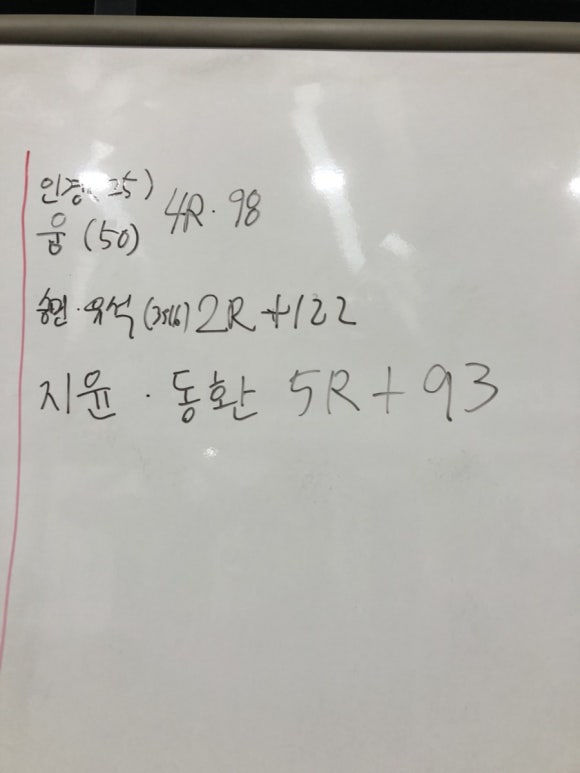 인경(25)
움 (50) 4R·98
승현·유석 (35 16) 2R+122
지윤·동환 5R+93